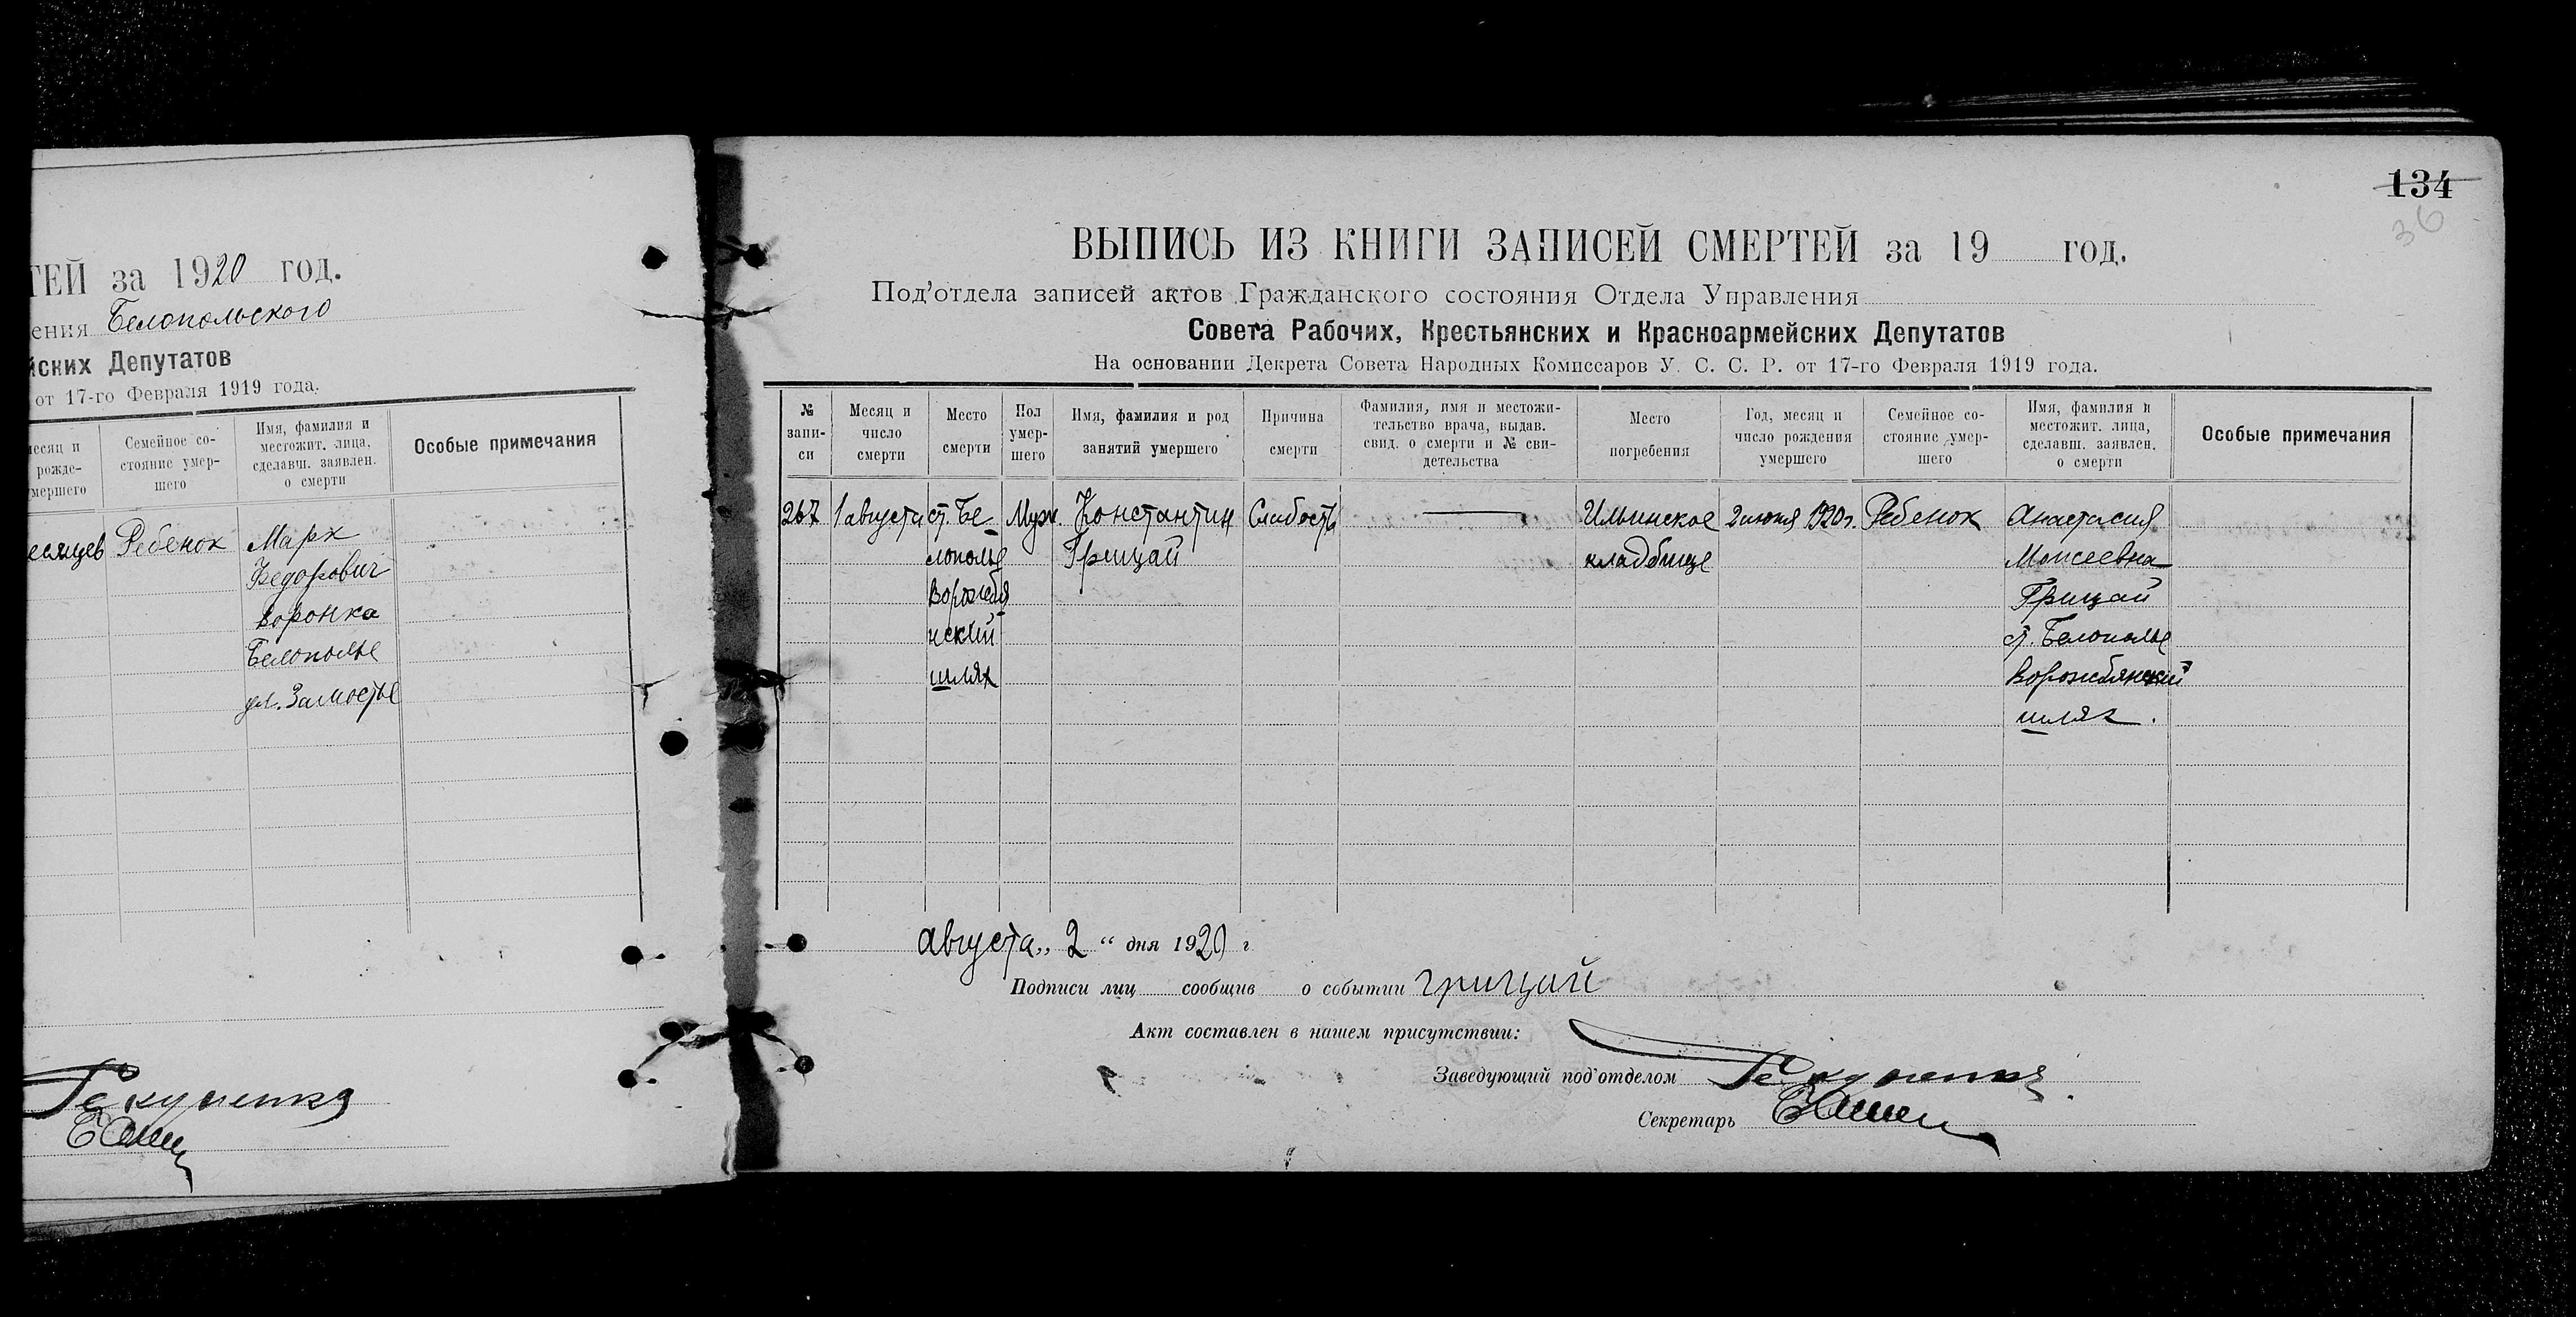 ТЕЙ за 1920 год.
ения Белопольского
йских Депутатов
от 17-го Февраля 1919 года.
месяц и
рожде-
умершего
Семейное со-
стояние умер-
шего
Имя, фамилия и
местожит. лица,
сделавш. заявлен.
о смерти
Особые примечания
есяцев
Ребенок
Марк
Федорович
Воронка
Белополье
ул. Замостье
134
36
ВЫПИСЬ ИЗ КНИГИ ЗАПИСЕЙ СМЕРТЕЙ за 19 год.
Под'отдела записей актов Гражданского состояния Отдела Управления
Совета Рабочих, Крестьянских и Красноармейских Депутатов
На основании Декрета Совета Народных Комиссаров У. С. С. Р. от 17-го Февраля 1919 года.
№
запи-
си
Месяц и
число
смерти
Место
смерти
Пол
умер-
шего
Имя, фамилия и род
занятий умершего
Причина
смерти
Фамилия, имя и местожи-
тельство врача, выдав.
свид. о смерти и № сви-
детельства
Место
погребения
Год, месяц и
число рождения
умершего
Семейное со-
стояние умер-
шего
Имя, фамилия и
местожит. лица,
сделавш. заявлен.
о смерти
Особые примечания
267
1 августа
ст. Бе-
лополье
Ворожбя
нский
шлях
Муж.
Константин
Грицай
Слабость
Ильинское
кладбище
2 июня 1920 г.
Ребенок
Анастасия
Моисеевна
Грицай
ст. Белополье
Ворожбянский
шлях.
августа „ 2 “ дня 1920 г
Подписи лиц сообщив о событии Грицай
Акт составлен в нашем присутствии:
Заведующий под'отделом
Секретарь